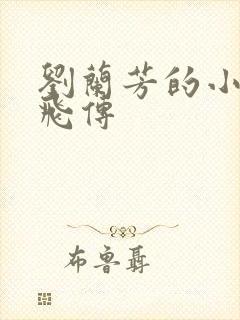 劉蘭芳的小
飛傳
布魯聶